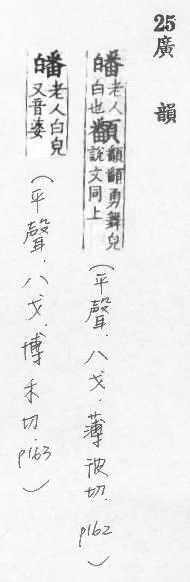 25廣韻
皤老人白也䫠䫠䫠勇舞皃說文同上(平聲.八戈.薄波切.p162)
皤老人白皃又音婆(平聲.八戈.博禾切.p163)